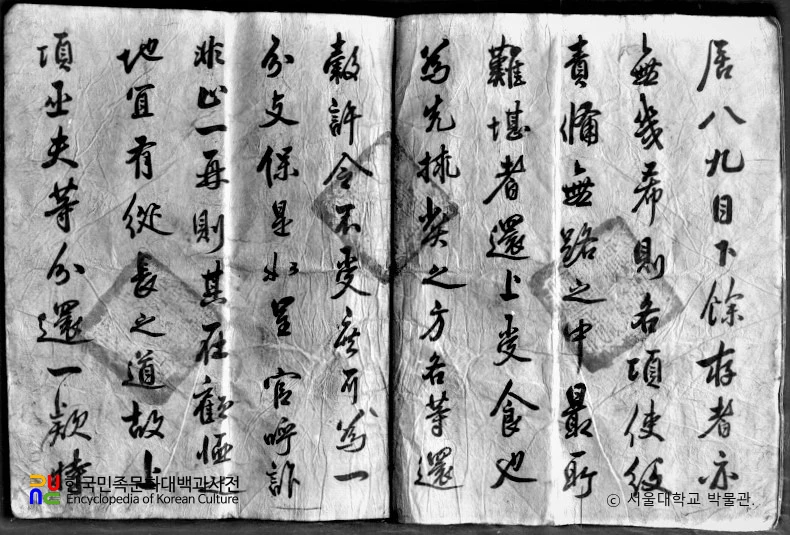 居八九目下餘存者亦
無幾希則各項使役
責備無路之中最所
難堪者還上受食也
為先救類之方各等還
穀許令不受庶可為一
分支保是如呈官呼訴
非止一再則其在顧恤之
地宜有從長之道故上
項巫夫等分還一款
한국민족문화대백과사전
Encyclopedia of Korean Culture
© 서울대학교 박물관.